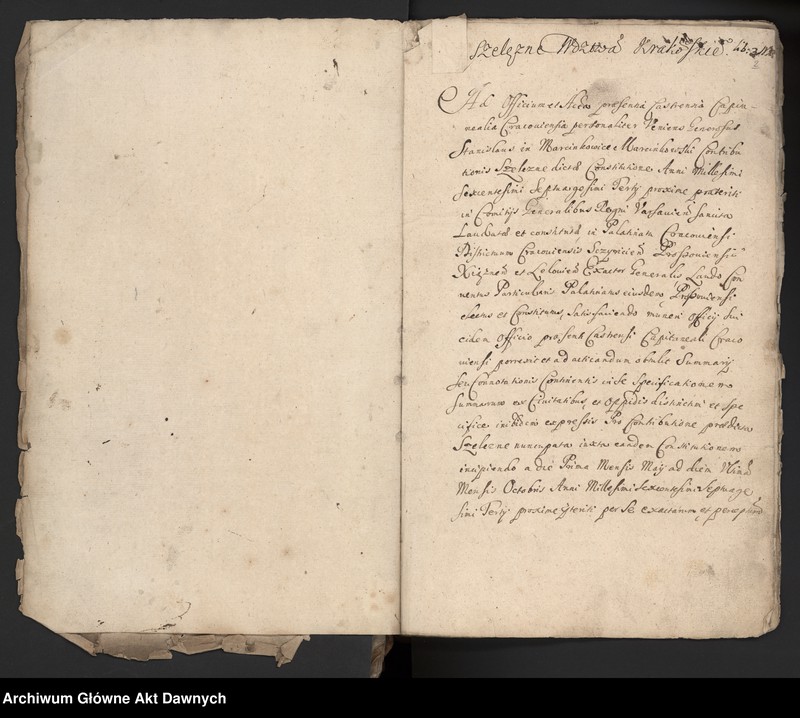 Szelęzne Wdztwa Krakoskie
Ad Officium et Acta præsentia Castrensia Capita-
nealia Cracouiensia personaliter Veniens Generosus
Stanislaus in Marcinkowice Marcinkowski Contribu
tionis Szelezne dictæ Constitutione Anni Millesimi
sexcentesimi Septuagesimi Tertij proxime præteriti
in Comitijs Generalibus Regni Varsauien sancita
Laudatæ et constitutæ in Palatinatu Cracouiensi
Districtuum Cracouiensis Sczyricien Prossouiensis
Xiąznen et Lelouien Exactor Generalis Laudo Con
uentus Particularis Palatinatus eiusdem Prossouiensi
electus et Constitutus, satisfaciendo muneri officij sui
eidem Officio præsenti Castrensi Capitaneali Craco
uiensi porrexit et ad acticandum obtulit Summarij
seu Connotationis Continentis in se specificationem
summarum ex Ciuitatibus, et Oppidis districtim et spe
cifice inibidem expressis Pro Contributione prædicta
Szelezne nuncupata iuxta eandem Constitutionem
incipiendo a die Prima Mensis Maij ad diem Vltimā
Mensis Octobris Anni Millesimi Sexcentesimi Septuage
simi Tertij proxime præteriti per se exactarum et perceptarū
Archiwum Główne Akt Dawnych